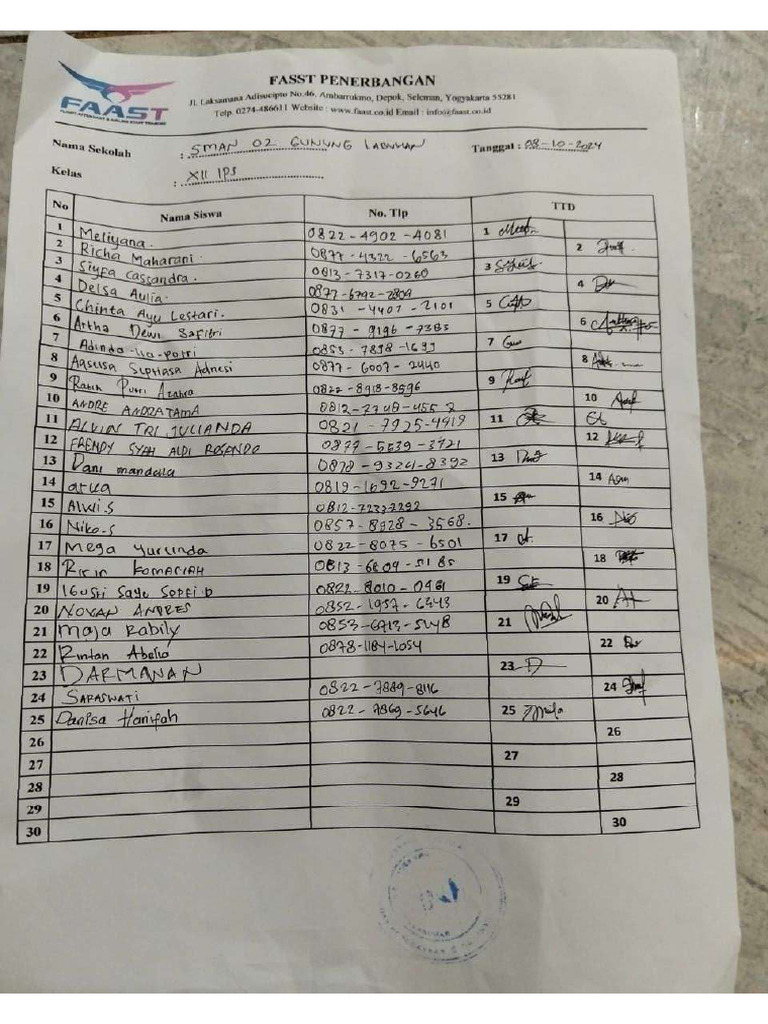 FAAST
FLIGHT ATTENDANT & AIRLINE STAFF TRAINING
FASST PENERBANGAN
Jl. Laksamana Adisucipto No.46, Ambarrukmo, Depok, Seleman, Yogyakarta 55281
Telp. 0274-486611 Website : www.faast.co.id Email : info@faast.co.id
Nama Sekolah : SMAN 02 GUNUNG LABUHAN Tanggal : 08-10-2024
Kelas : XII IPS
No Nama Siswa No. Tlp TTD
1 Meliyana. 0822-4902-4081 1
2 Richa Maharani. 0877-4322-6563 2
3 Siyfa Cassandra. 0813-7317-0260 3
4 Delsa Aulia. 0877-6792-2809 4
5 Chinta Ayu Lestari. 0831-4407-2101 5
6 Artha Dewi Safitri 0877-9196-7385 6
7 Adinda-lia-potri 0853-7898-1699 7
8 Agsusa Septiasa Adnesi 0877-6007-2440 8
9 Ratih Putri Azahra 0822-8918-8596 9
10 ANDRE ANDRATAMA 0812-7748-455 10
11 ALVIN TRI JULIANDA 0821-7925-4919 11
12 FRENDY SYAH ALDI ROSANDO 0877-5639-3721 12
13 Dani mandala 0878-9324-8392 13
14 arya 0819-1692-9271 14
15 Alwi.S 0812-72337292 15
16 Niko.S 0857-8928-3568. 16
17 Mega Yurlinda 0822-8075-6501 17
18 Ririn KOMARIAH 0813-6809-5185 18
19 IGusti Sayu Sopri D 0822-8010-0461 19
20 NOVAN ANDRES 0852-1957-6343 20
21 Maja Rabily 0853-6713-5448 21
22 Rintan Abelia 0878-1184-1054 22
23 DARMANAN 23
24 SARASWATI 0822-7889-8116 24
25 Danisa Hanifah 0822-7869-5646 25
26 26
27 27
28 28
29 29
30 30